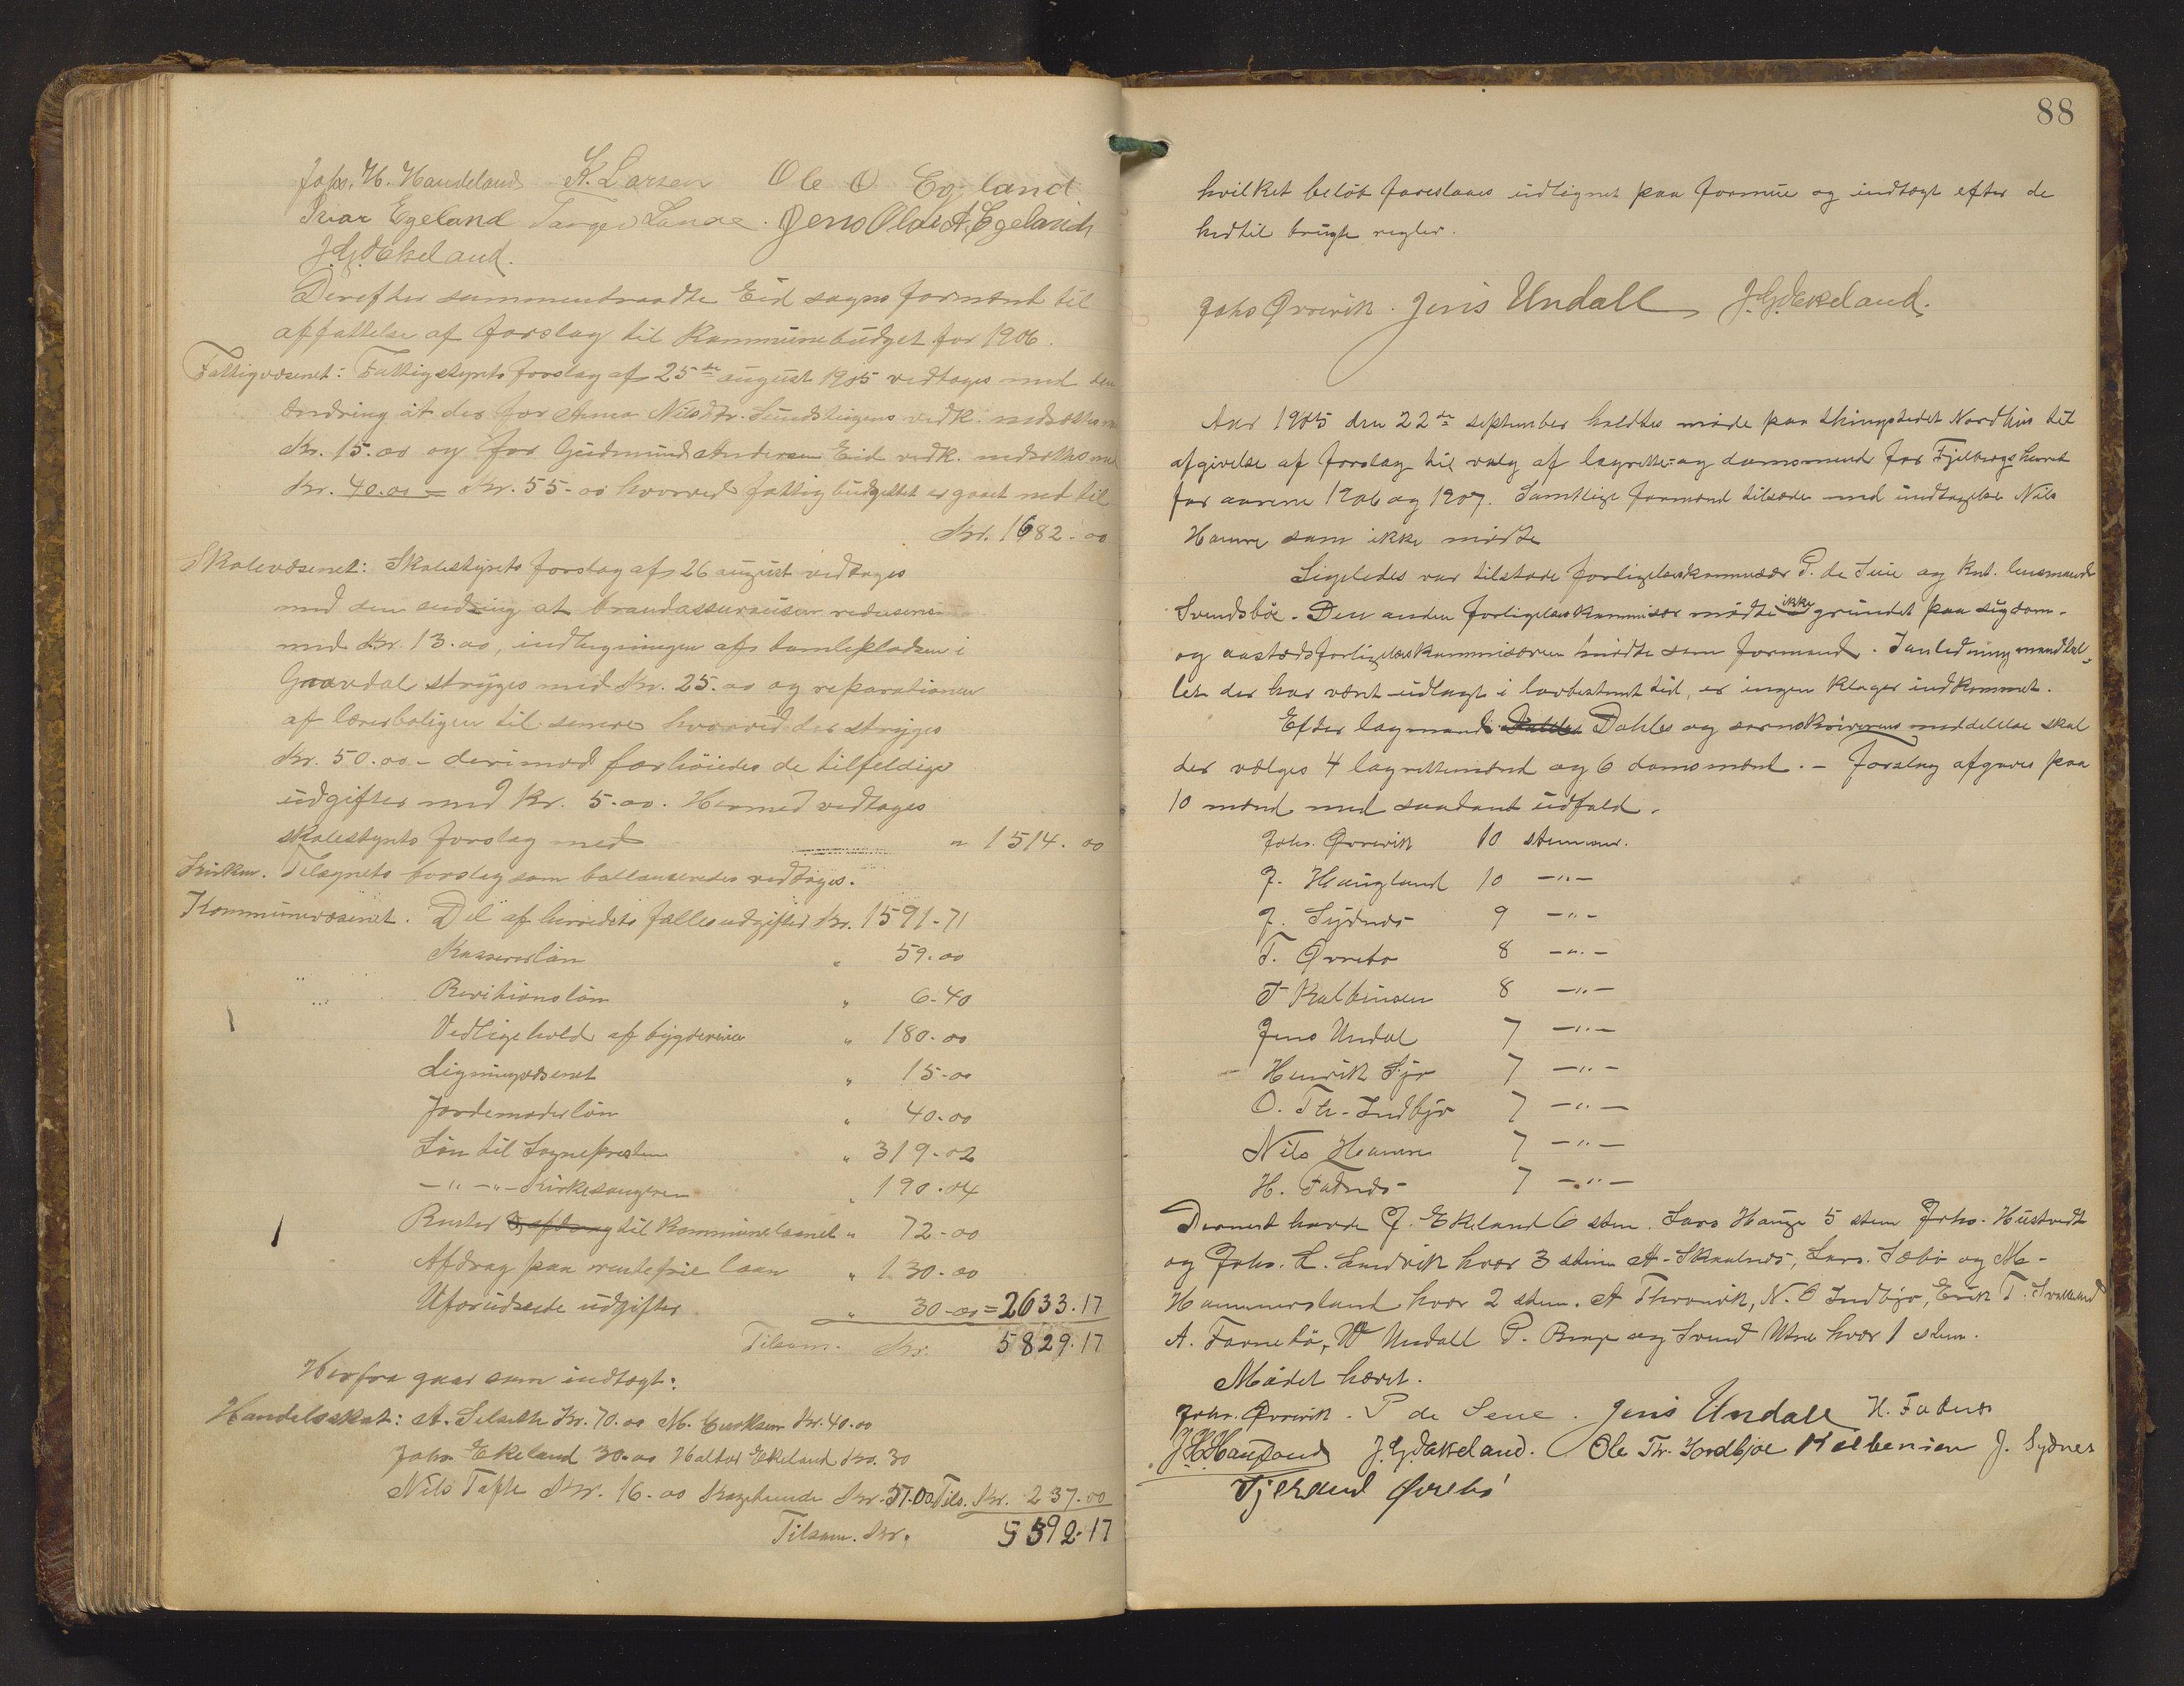 Johs. H. Handeland K. Larsen Ole O Egeland
Briar Egeland Torger Lunde. Jens Olai A. Egeland
J. G. Ekeland.
Derefter sammentraadte Eid sogns formænd til
affattelse af forslag til kommunebudget for 1906.
Fattigvæsenet: Fattigstyrets forslag af 25de august 1905 vedtages med den
ændring at der for Anna Nilsdtr. vedk. nedsættes med
Kr. 15.00 og for Gudmund Andersen Eid vedk. nedsættes med
Kr. 40.00 = Kr. 55-00 hvorved fattigbudgettet er gaaet ned til
Kr. 1682-00
Skolevæsenet: Skolestyrets forslag af 26 august vedtages
med den endring at brandassuransen reduseres
med Kr. 13.00, indhegningen af tomlepladsen i
Graavdal stryges med Kr. 25.00 og reparationen
af lærerboligen til senere hvorved der stryges
Kr. 50.00 - derimod forhöiedes de tilfeldige
udgifter med Kr. 5.00. Hermed vedtages
skolestyrets forslag med " 1514.00
Kirken. Tilsynets forslag som ballanseredes vedtoges.
Kommunevæsenet. Del af herredets fællesudgifter Kr. 1591-71
Kassererlön " 59.00
Revitionslön " 6-40
Vedligehold af bygdeveier " 180.00
Ligningsvæsenet " 15-00
Jordemoderlön " 40-00
Lön til Sognepresten " 319-02
-"- -"- Kirkesangeren " 190.04
Renter & afdrag til Kommunelaanet " 72-00
Afdrag paa rentefrie laan " 130-00
Uforudseede udgifter " 30-00 = 2633.17
Tilsam. Kr. 5829.17
Herfra gaar som indtægt:
Handelsskat: A. Selseth Kr. 70.00 M. Eriksen Kr. 40.00
Johs. Ekeland 30.00 Haldor Ekeland Kr. 30
Nils Tofte Kr. 16.00 Kr. 51.00 Tils. Kr. 237.00
Tilsam. Kr. 5592.17
88
hvilket belöb foreslaaes udlignet paa formue og indtægt efter de
hidtil brugte regler.
Johs Ørrevik. Jens Undall J. G. Ekeland.
Aar 1905 den 22de september holdtes möde paa thingstedet Nordhus til
afgivelse af forslag til valg af lagrette- og domsmænd for Fjelbergs herred
for aarene 1906 og 1907. Samtlige formænd tilstede med undtagelse Nils
Hamre som ikke mödte
Ligeledes var tilstede forligelseskommisær P. de Seue og knt. lensmand
Svendsböe. Den anden forligelseskommisær mödte ikke grundet paa sygdom.
og aastedsforligelseskommisæren mödte som formand. I anledning mandtal-
let der har været udlagt i lovbestemt tid, er ingen klager indkommet.
Efter lagmand Dahles Dahles og sorenskriverens meddelelse skal
der vælges 4 lagrettemænd og 6 domsmænd. - Forslag afgaves paa
10 mænd med saadant udfald.
Johs. Ørrevik 10 stemmer.
J. Haugland 10 -"-
J. Sydnes 9 -"-
T. Ørrebö 8 -"-
T Kalbensen 8 -"-
Jens Undal 7 -"-
Henrik Sjo 7 -"-
O. Th. Indbjo 7 -"-
Nils Hamre 7 -"-
H. Fadnes 7 -"-
Dernest havde J. Ekeland 6 stem. Lars Hauge 5 stem Johs. Hustvedt
og Johs. L. Landvik hver 3 stem A. Skaalnes, Lars Sæbö og M.
Hammersland hver 2 stem. A Throvik, N. O Indbjo, Erik T. Svalland
A. Tornebö, W Undall P. Berge og Svend Utne hver 1 stem.
Mödet hævet.
Johs. Ørrevik. P de Seue. Jens Undall H. Fadnes
J. H. Haugland J. G. Ekeland. Ole Th. Indbjoe Kalbensen J. Sydnes
Tjerand Ørrebö